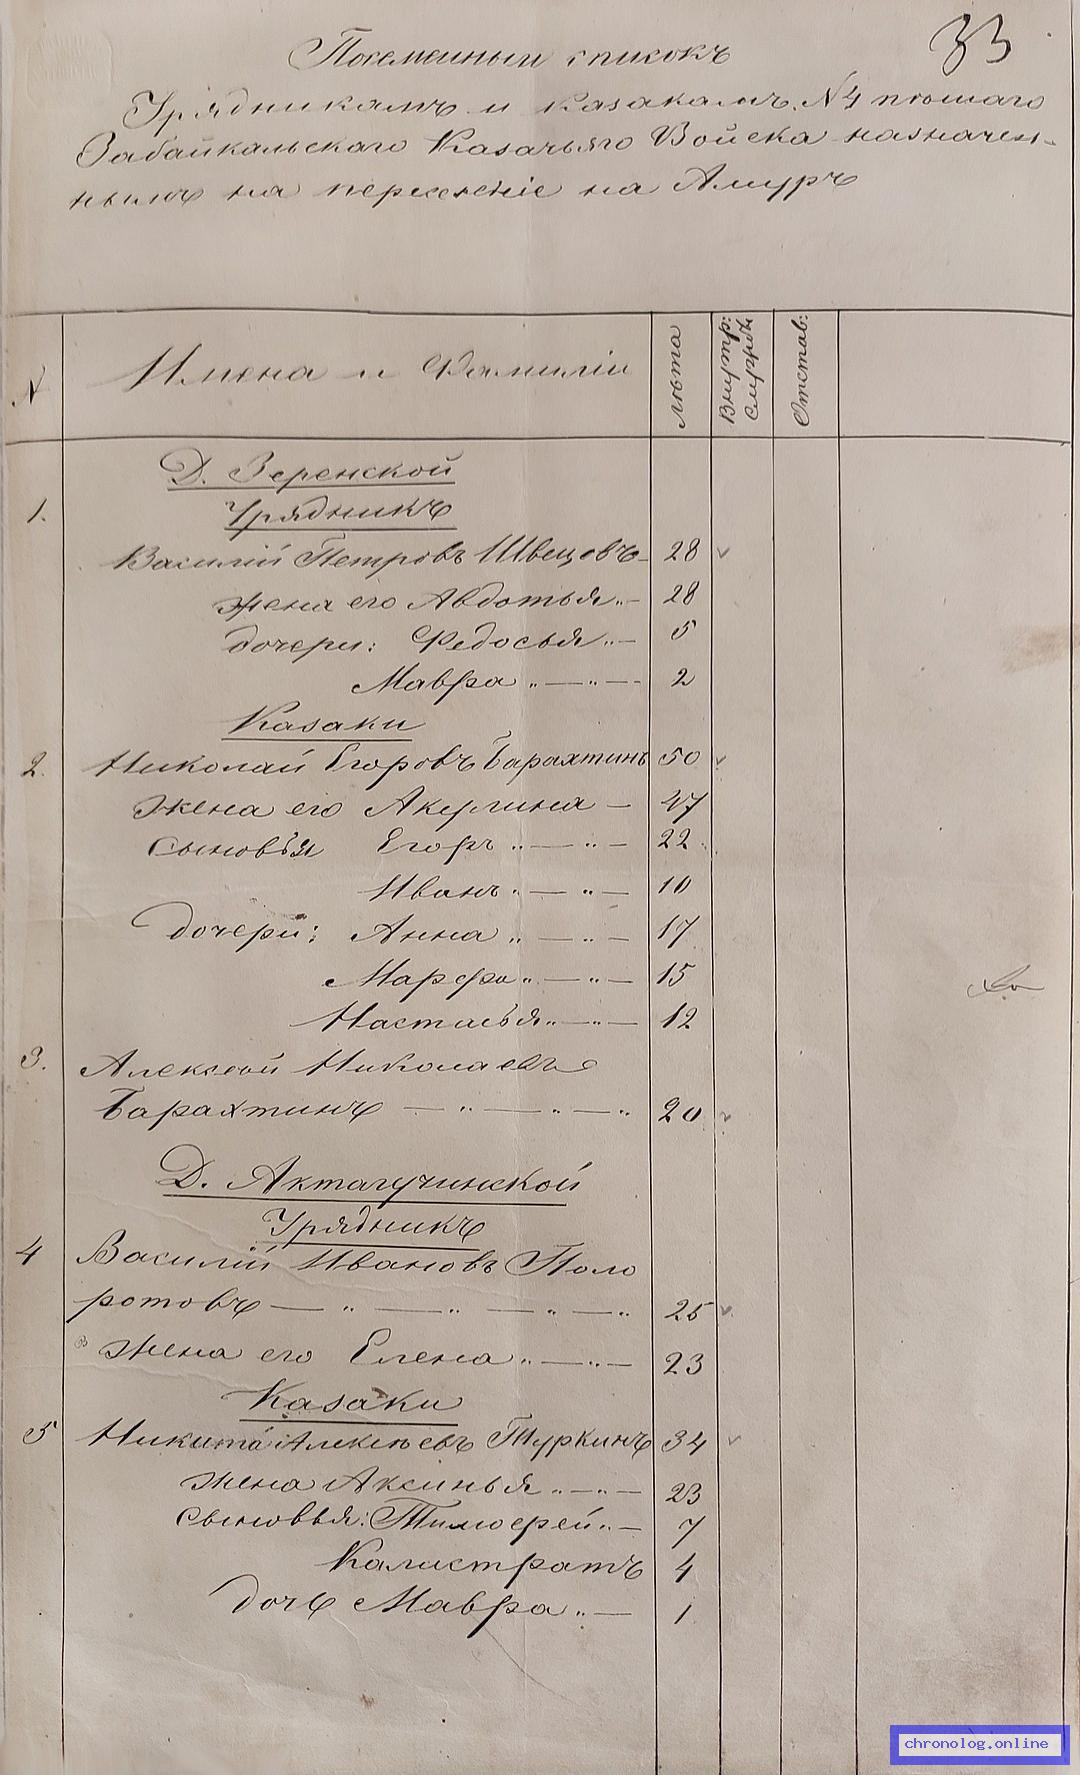 33
Посемейный списокъ
Урядникамъ и казакамъ N4 пѣшаго
Забайкальскаго Казачьяго Войска назначен-
нымъ на переселеніе на Амуръ
N
Имена и Фамиліи
Лѣта
Внутр:
Службы
Отстав:
Д. Зеренской
1.
Урядникъ
Василій Петровъ Швецовъ 28
жена его Авдотья „ — 28
дочери: Федосья „ — 5
Мавра „ — „ — 2
Казаки
2. Николай Егоровъ Барахтинъ 50
Жена его Акулина — 47
Сыновья Егоръ „ — „ — 22
Иванъ „ — „ — 10
дочери: Анна „ — „ — 17
Марфа „ — „ — 15
Настасья „ — „ — 12
3. Алексѣй Николаевъ
Барахтинъ — „ — „ — „ 20
Д. Актагучинской
Урядникъ
4 Василій Ивановъ Поло
ротовъ — „ — „ — „ — „ 25
жена его Елена „ — „ — 23
Казаки
5 Никита Алексѣевъ Туркинъ 34
жена Аксинья „ — „ — 23
сыновья: Тимофей „ — 7
Калистратъ 4
дочь Мавра „ — 1
chronolog.online